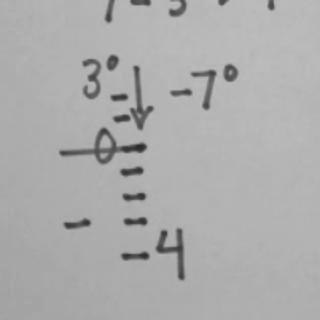 3° ↓ -7°
0
- 4